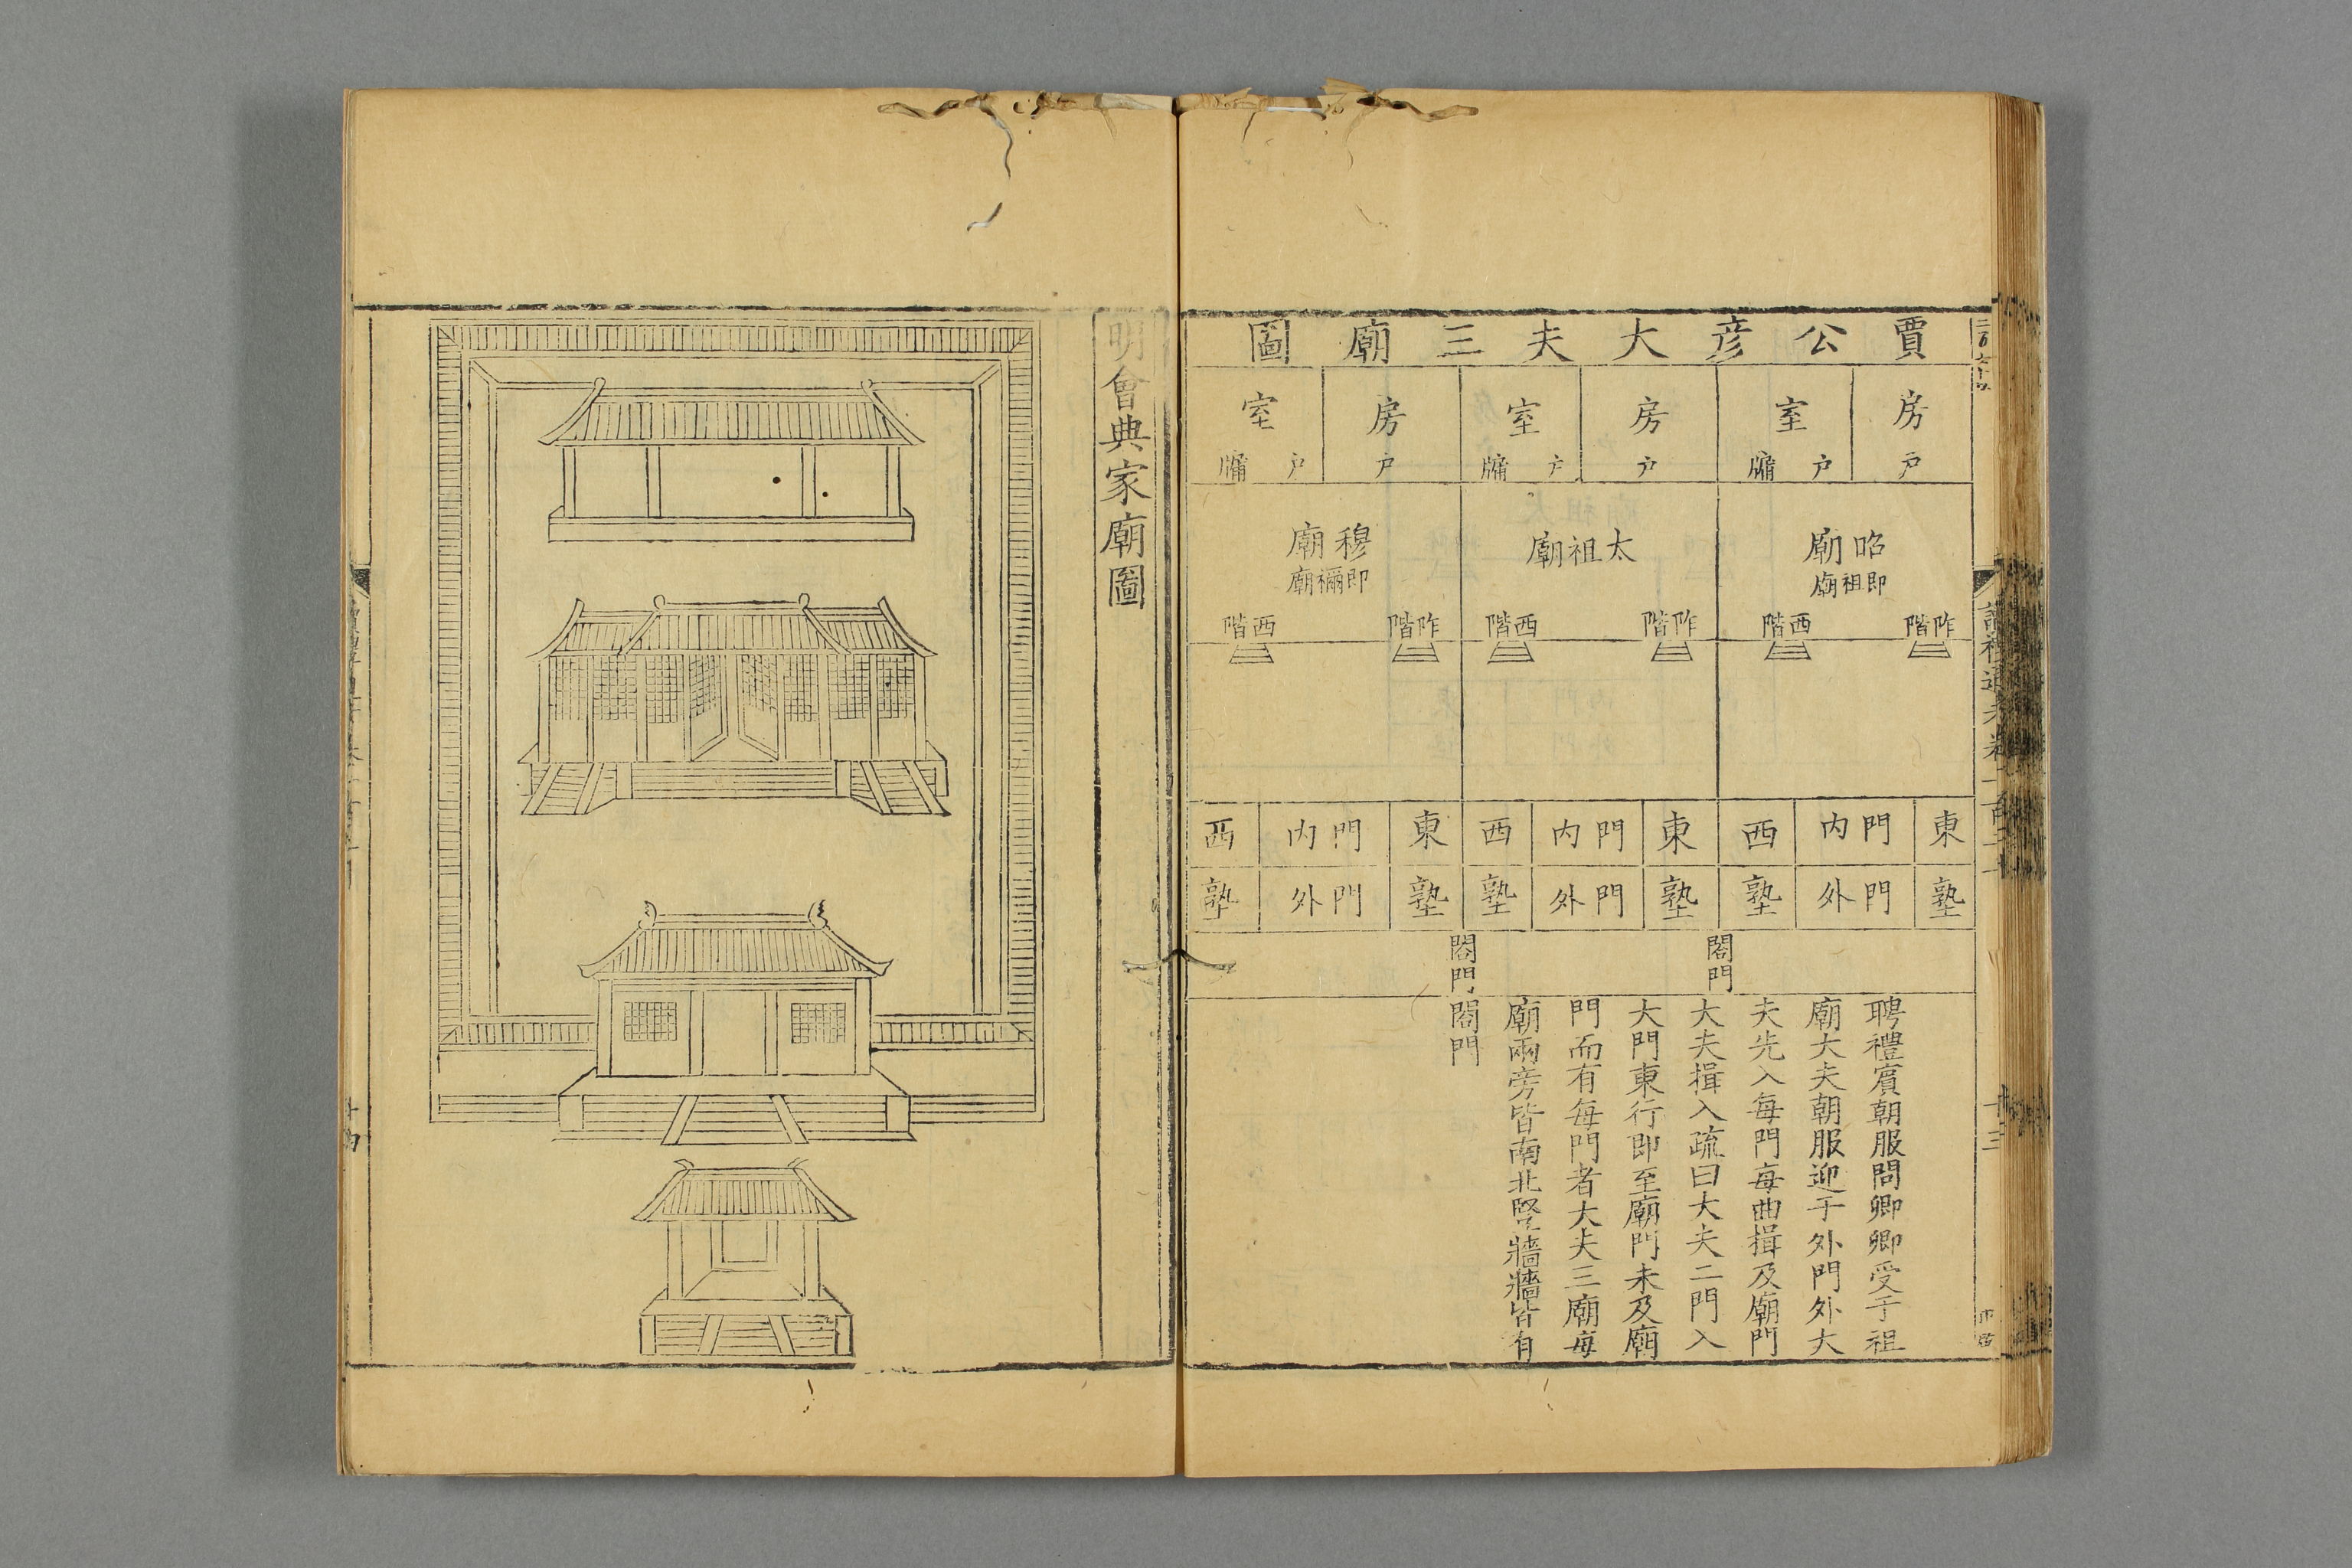 賈公彦大夫三廟圖
房 室 房 室 房 室
戶 戶 牖 戶 戶 牖 戶 戶 牖
昭廟 太祖廟 穆廟
即祖廟 即禰廟
阼階 西階 阼階 西階 阼階 西階
東 門內 西 東 門內 西 東 門內 西
塾 門外 塾 塾 門外 塾 塾 門外 塾
閤門 閤門
聘禮賓朝服問卿卿受于祖
廟大夫朝服迎于外門外大
夫先入每門每曲揖及廟門
大夫揖入疏曰大夫二門入
大門東行即至廟門未及廟
門而有每門者大夫三廟每
廟兩旁皆南北竪牆牆皆有
閤門
明會典家廟圖